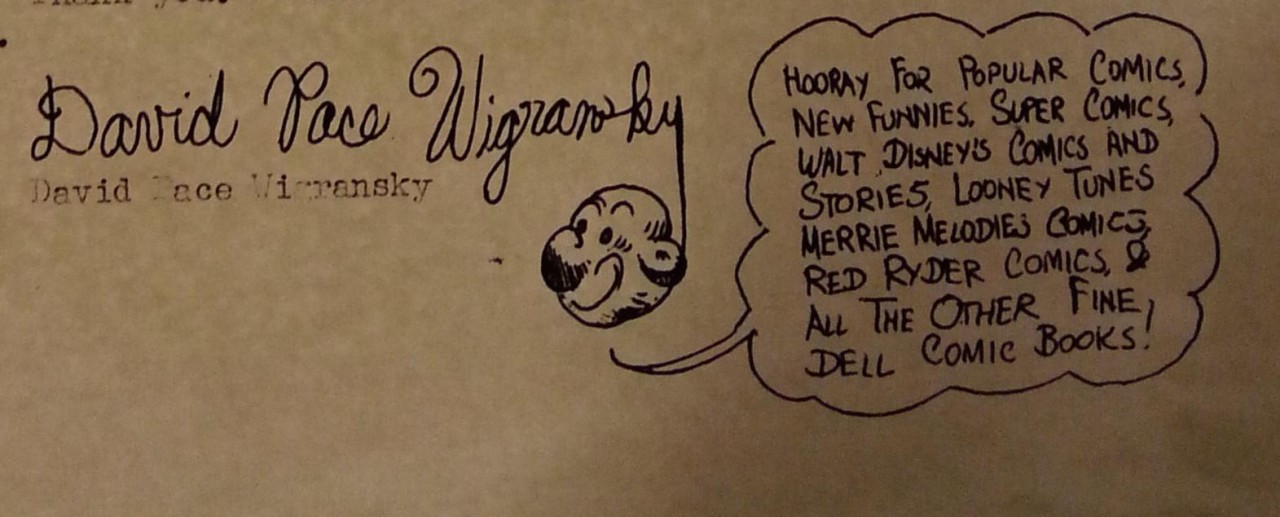 David Pace Wigransky
David Pace Wigransky
HOORAY FOR POPULAR COMICS,
NEW FUNNIES, SUPER COMICS,
WALT DISNEY'S COMICS AND
STORIES, LOONEY TUNES
MERRIE MELODIES COMICS,
RED RYDER COMICS, &
ALL THE OTHER FINE
DELL COMIC BOOKS!